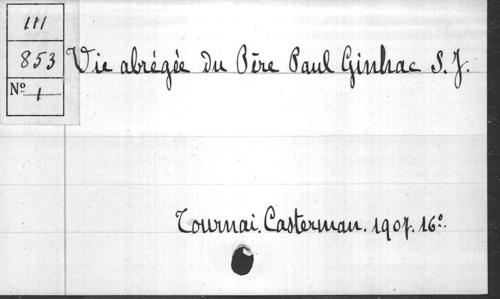 III
853
Nº 1
Vie abrégée du Père Paul Ginhac S. J.
Tournai. Casterman. 1907. 16º.